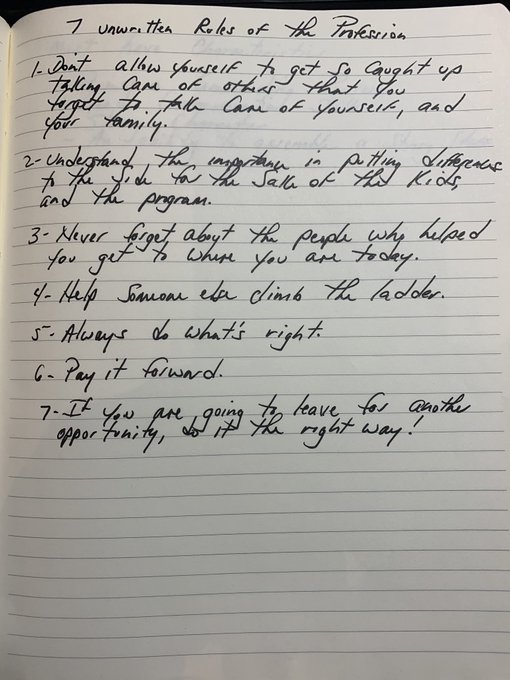 7 unwritten Rules of the Profession
1- Don't allow yourself to get so caught up
talking care of others that you
forget to take care of yourself, and
your family.
2- Understand the importance in putting differences
to the side for the sake of the kids,
and the program.
3- Never forget about the people who helped
you get to where you are today.
4- Help someone else climb the ladder.
5- Always do what's right.
6- Pay it forward.
7- If you are going to leave for another
opportunity, do it the right way!